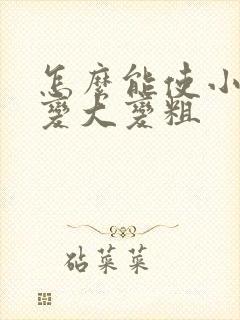 怎麼能使小
變大變粗
砧菜菜